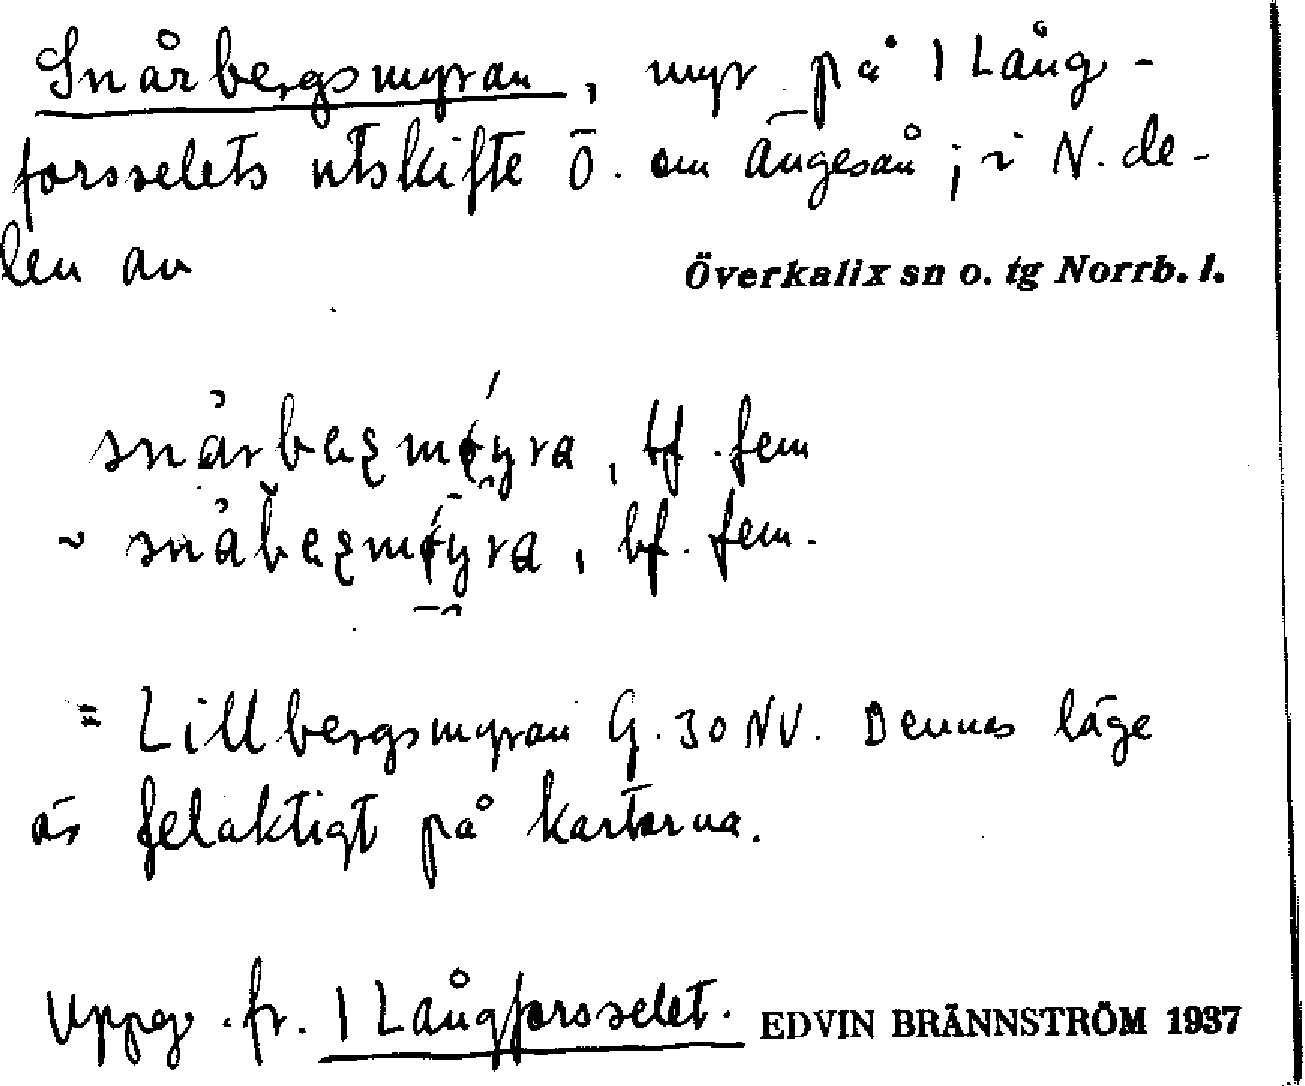 Snårbergsmyran, myr på 1 Lång-
forsselets utskifte Ö. om Ängesån; i N. de-
len av Överkalix sn o. tg Norrb. l.
snårbaʒmǿyra, bf. fem
~ snåbaʒmǿyra, bf. fem.
= Lillbergsmyran G. 30 NV. Dennas läge
är felaktigt på kartorna.
Uppg. fr. 1 Långforsselet. EDVIN BRÄNNSTRÖM 1937